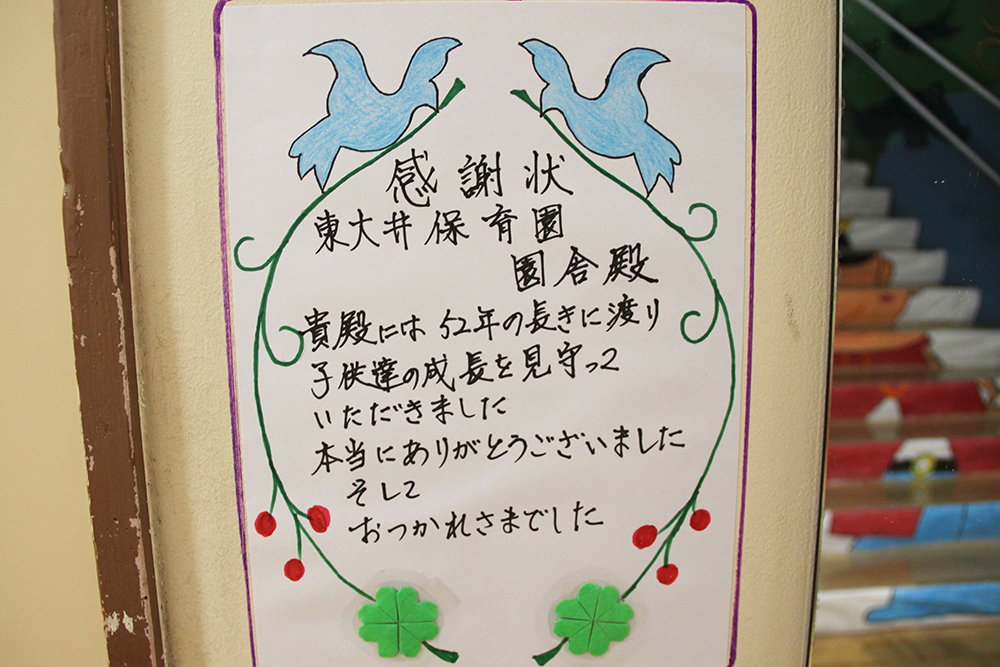 感謝状
東大井保育園
園舎殿
貴殿には52年の長きに渡り
子供達の成長を見守って
いただきました
本当にありがとうございました
そして
おつかれさまでした